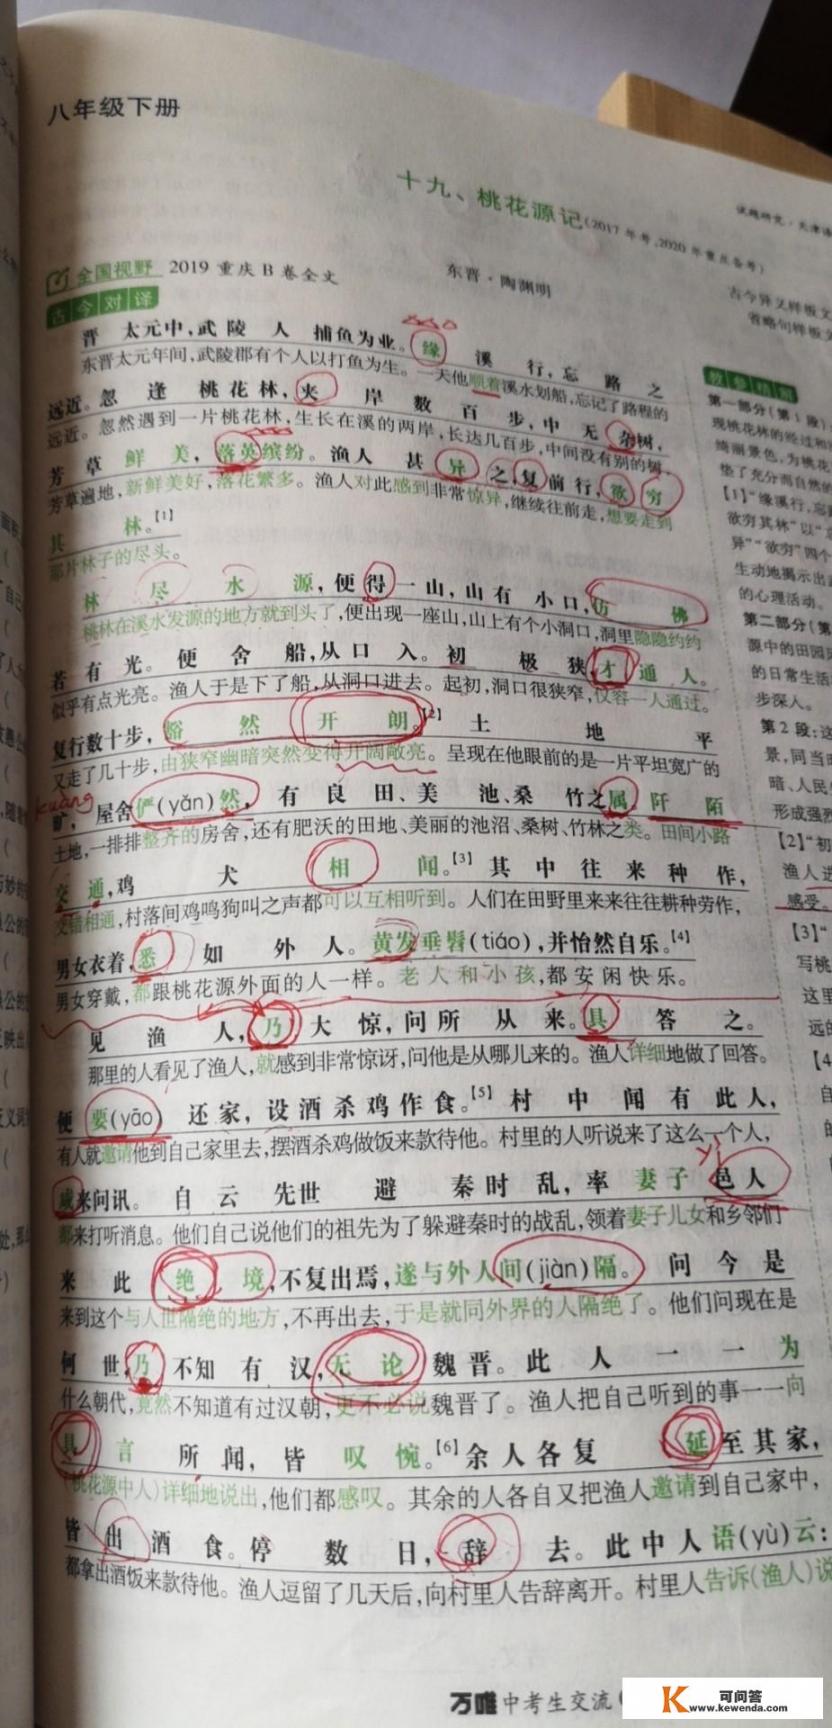 八年级下册
十九、桃花源记(2017年考,2020年重点备考)
试题研究·天津
全国视野 2019重庆B卷全文
东晋·陶渊明
古今异义样板文
省略句样板
古今对译
晋太元中,武陵人捕鱼为业。缘溪行,忘路之
东晋太元年间,武陵郡有个人以打鱼为生。一天他顺着溪水划船,忘记了路程的
远近。忽逢桃花林,夹岸数百步,中无杂树,
远近。忽然遇到一片桃花林,生长在溪的两岸,长达几百步,中间没有别的树,
芳草鲜美,落英缤纷。渔人甚异之,复前行,欲穷
芳草遍地,新鲜美好,落花繁多。渔人对此感到非常惊异,继续往前走,想要走到
其林。[1]
那片林子的尽头。
林尽水源,便得一山,山有小口,仿佛
桃林在溪水发源的地方就到头了,便出现一座山,山上有个小洞口,洞里隐隐约约
若有光。便舍船,从口入。初极狭,才通人。
似乎有点光亮。渔人于是下了船,从洞口进去。起初,洞口很狭窄,仅容一人通过。
复行数十步,豁然开朗。[2]土地平
又走了几十步,由狭窄幽暗突然变得开阔敞亮。呈现在他眼前的是一片平坦宽广的
kuàng
旷,屋舍俨(yǎn)然,有良田、美池、桑竹之属。阡陌
土地,一排排整齐的房舍,还有肥沃的田地、美丽的池沼、桑树、竹林之类。田间小路
交通,鸡犬相闻。[3]其中往来种作,
交错相通,村落间鸡鸣狗叫之声都可以互相听到。人们在田野里来来往往耕种劳作,
男女衣着,悉如外人。黄发垂髫(tiáo),并怡然自乐。[4]
男女穿戴,都跟桃花源外面的人一样。老人和小孩,都安闲快乐。
见渔人,乃大惊,问所从来。具答之。
那里的人看见了渔人,就感到非常惊讶,问他是从哪儿来的。渔人详细地做了回答。
便要(yāo)还家,设酒杀鸡作食。[5]村中闻有此人,
有人就邀请他到自己家里去,摆酒杀鸡做饭来款待他。村里的人听说来了这么一个人,
yì
咸来问讯。自云先世避秦时乱,率妻子邑人
都来打听消息。他们自己说他们的祖先为了躲避秦时的战乱,领着妻子儿女和乡邻们
来此绝境,不复出焉,遂与外人间(jiàn)隔。问今是
来到这个与人世隔绝的地方,不再出去,于是就同外界的人隔绝了。他们问现在是
何世,乃不知有汉,无论魏晋。此人一一为
什么朝代,竟然不知道有过汉朝,更不必说魏晋了。渔人把自己听到的事一一向
具言所闻,皆叹惋。[6]余人各复延至其家,
(桃花源中人)详细地说出,他们都感叹。其余的人各自又把渔人邀请到自己家中,
皆出酒食。停数日,辞去。此中人语(yù)云:
都拿出酒饭来款待他。渔人逗留了几天后,向村里人告辞离开。村里人告诉(渔人)说
教参精析
第一部分(第1段)
现桃花林的经过和
绮丽景色,为桃花
垫了充分而自然的
【1】“缘溪行,忘
欲穷其林”以“
异”“欲穷”四个
生动地揭示出
的心理活动。
第二部分(第
源中的田园风
的日常生活
步深人。
第2段:这
景,同当时
暗、人民
形成强烈
【2】“初
渔人进
感受。
【3】“
写桃
这里
远的
【4
万唯中考生交流
可问答
www.kewenda.com